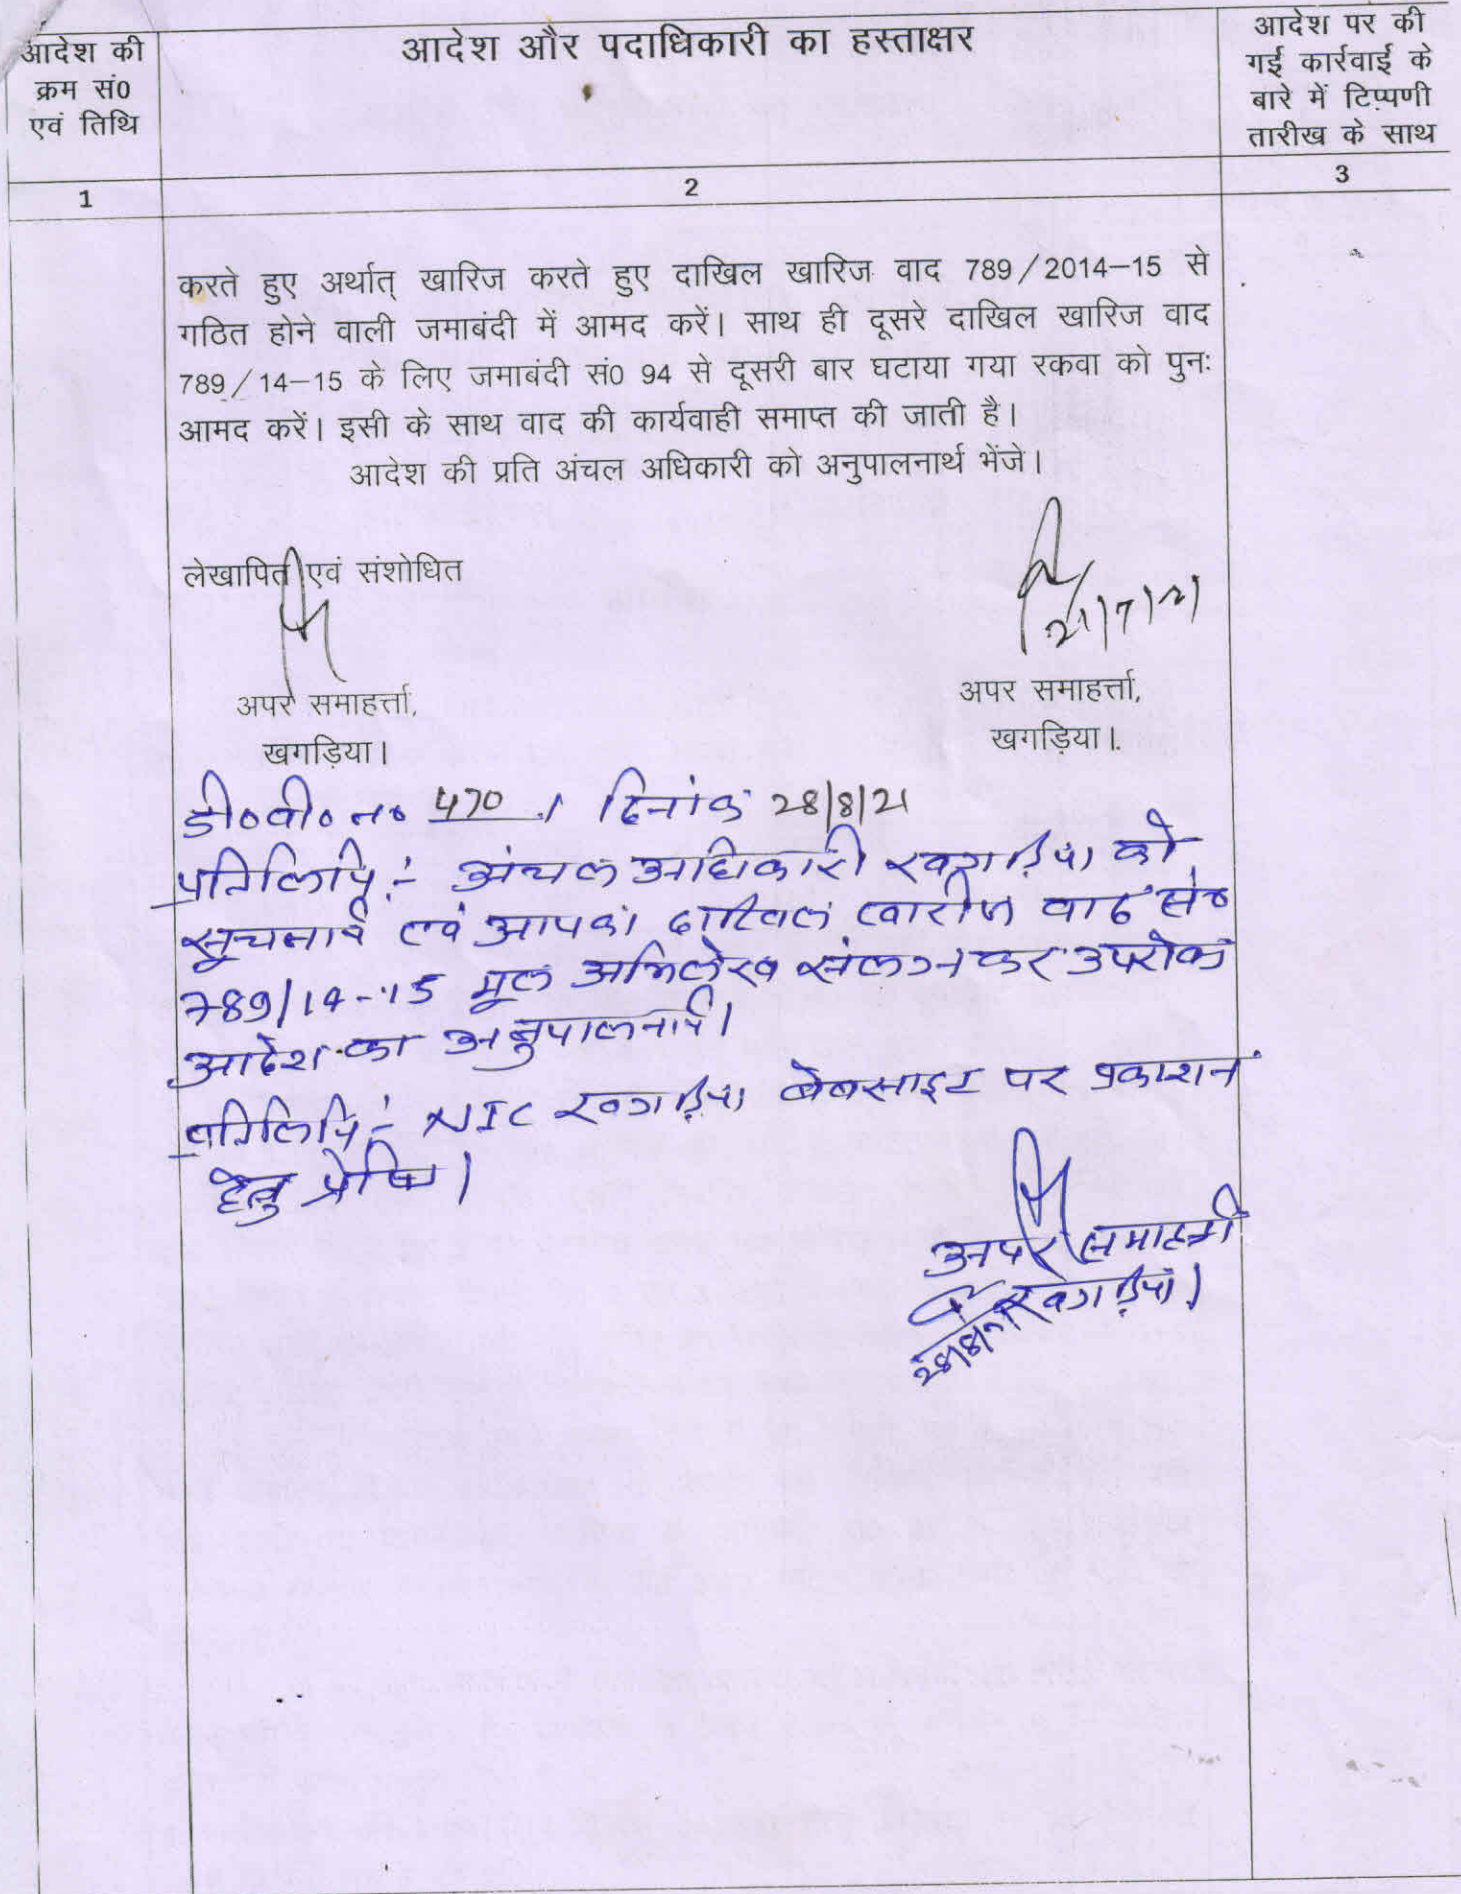 आदेश की
क्रम सं0
एवं तिथि
आदेश और पदाधिकारी का हस्ताक्षर
आदेश पर की
गई कार्रवाई के
बारे में टिप्पणी
तारीख के साथ
1
2
3
करते हुए अर्थात् खारिज करते हुए दाखिल खारिज वाद 789/2014–15 से
गठित होने वाली जमाबंदी में आमद करें। साथ ही दूसरे दाखिल खारिज वाद
789/14–15 के लिए जमाबंदी सं0 94 से दूसरी बार घटाया गया रकवा को पुनः
आमद करें। इसी के साथ वाद की कार्यवाही समाप्त की जाती है।
आदेश की प्रति अंचल अधिकारी को अनुपालनार्थ भेंजे।
लेखापित एवं संशोधित
21/7/21
अपर समाहर्त्ता,
खगड़िया।
अपर समाहर्त्ता,
खगड़िया।
डी०वी० न० 470 / दिनांक 28/8/21
प्रतिलिपि:- अंचल अधिकारी खगड़िया को
सूचनार्थ एवं आपका दाखिल खारीज वाद सं०
789/14-15 मूल अभिलेख संलग्न कर उपरोक्त
आदेश का अनुपालनार्थ।
प्रतिलिपि:- NIC खगड़िया बेबसाइट पर प्रकाशन
हेतु प्रेषित।
अपर समाहर्त्ता
खगड़िया।